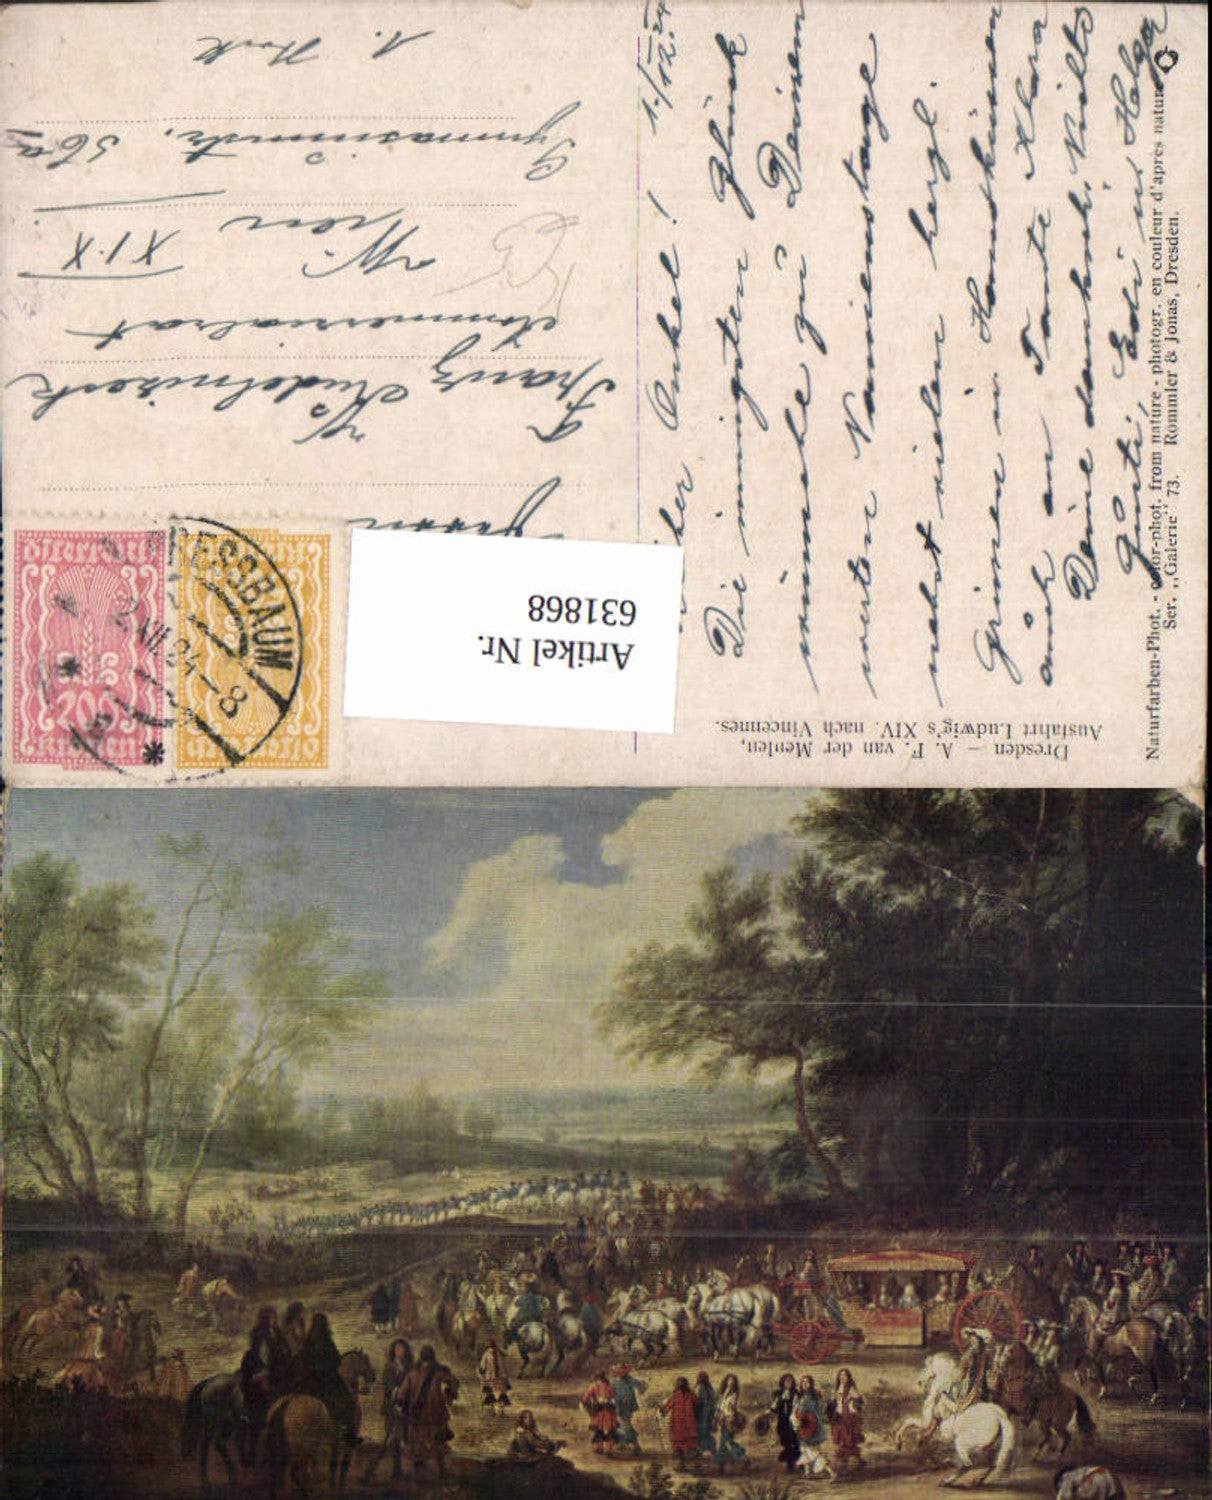 Dresden – A. F. van der Meulen,
Ausfahrt Ludwig's XIV. nach Vincennes.
Naturfarben-Phot. - color-phot. from nature - photogr. en couleur d'après nature
Ser. „Galerie" 73. Rommler & Jonas, Dresden.
1./12.24
Onkel!
Die innigsten Glück
wünsche zu Deinem
werten Namenstage
nebst vielen herzl.
Grüssen u. Handküssen
auch an Tante Klara
Deine dankb. Nichte
Gusti, Edi u. Helga
Herrn
Franz
Kommerzialrat
Wien
XIX
Gymnasiumstr. 56a
1. Stock
PRESSBAUM
2.XII.24-8
Österreich
200
Kronen
Österreich
Artikel Nr.
631868